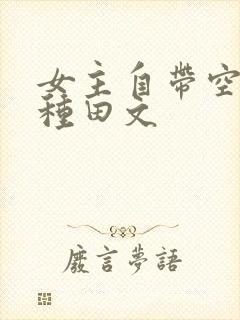 女主自帶空
種田文
廢言夢語